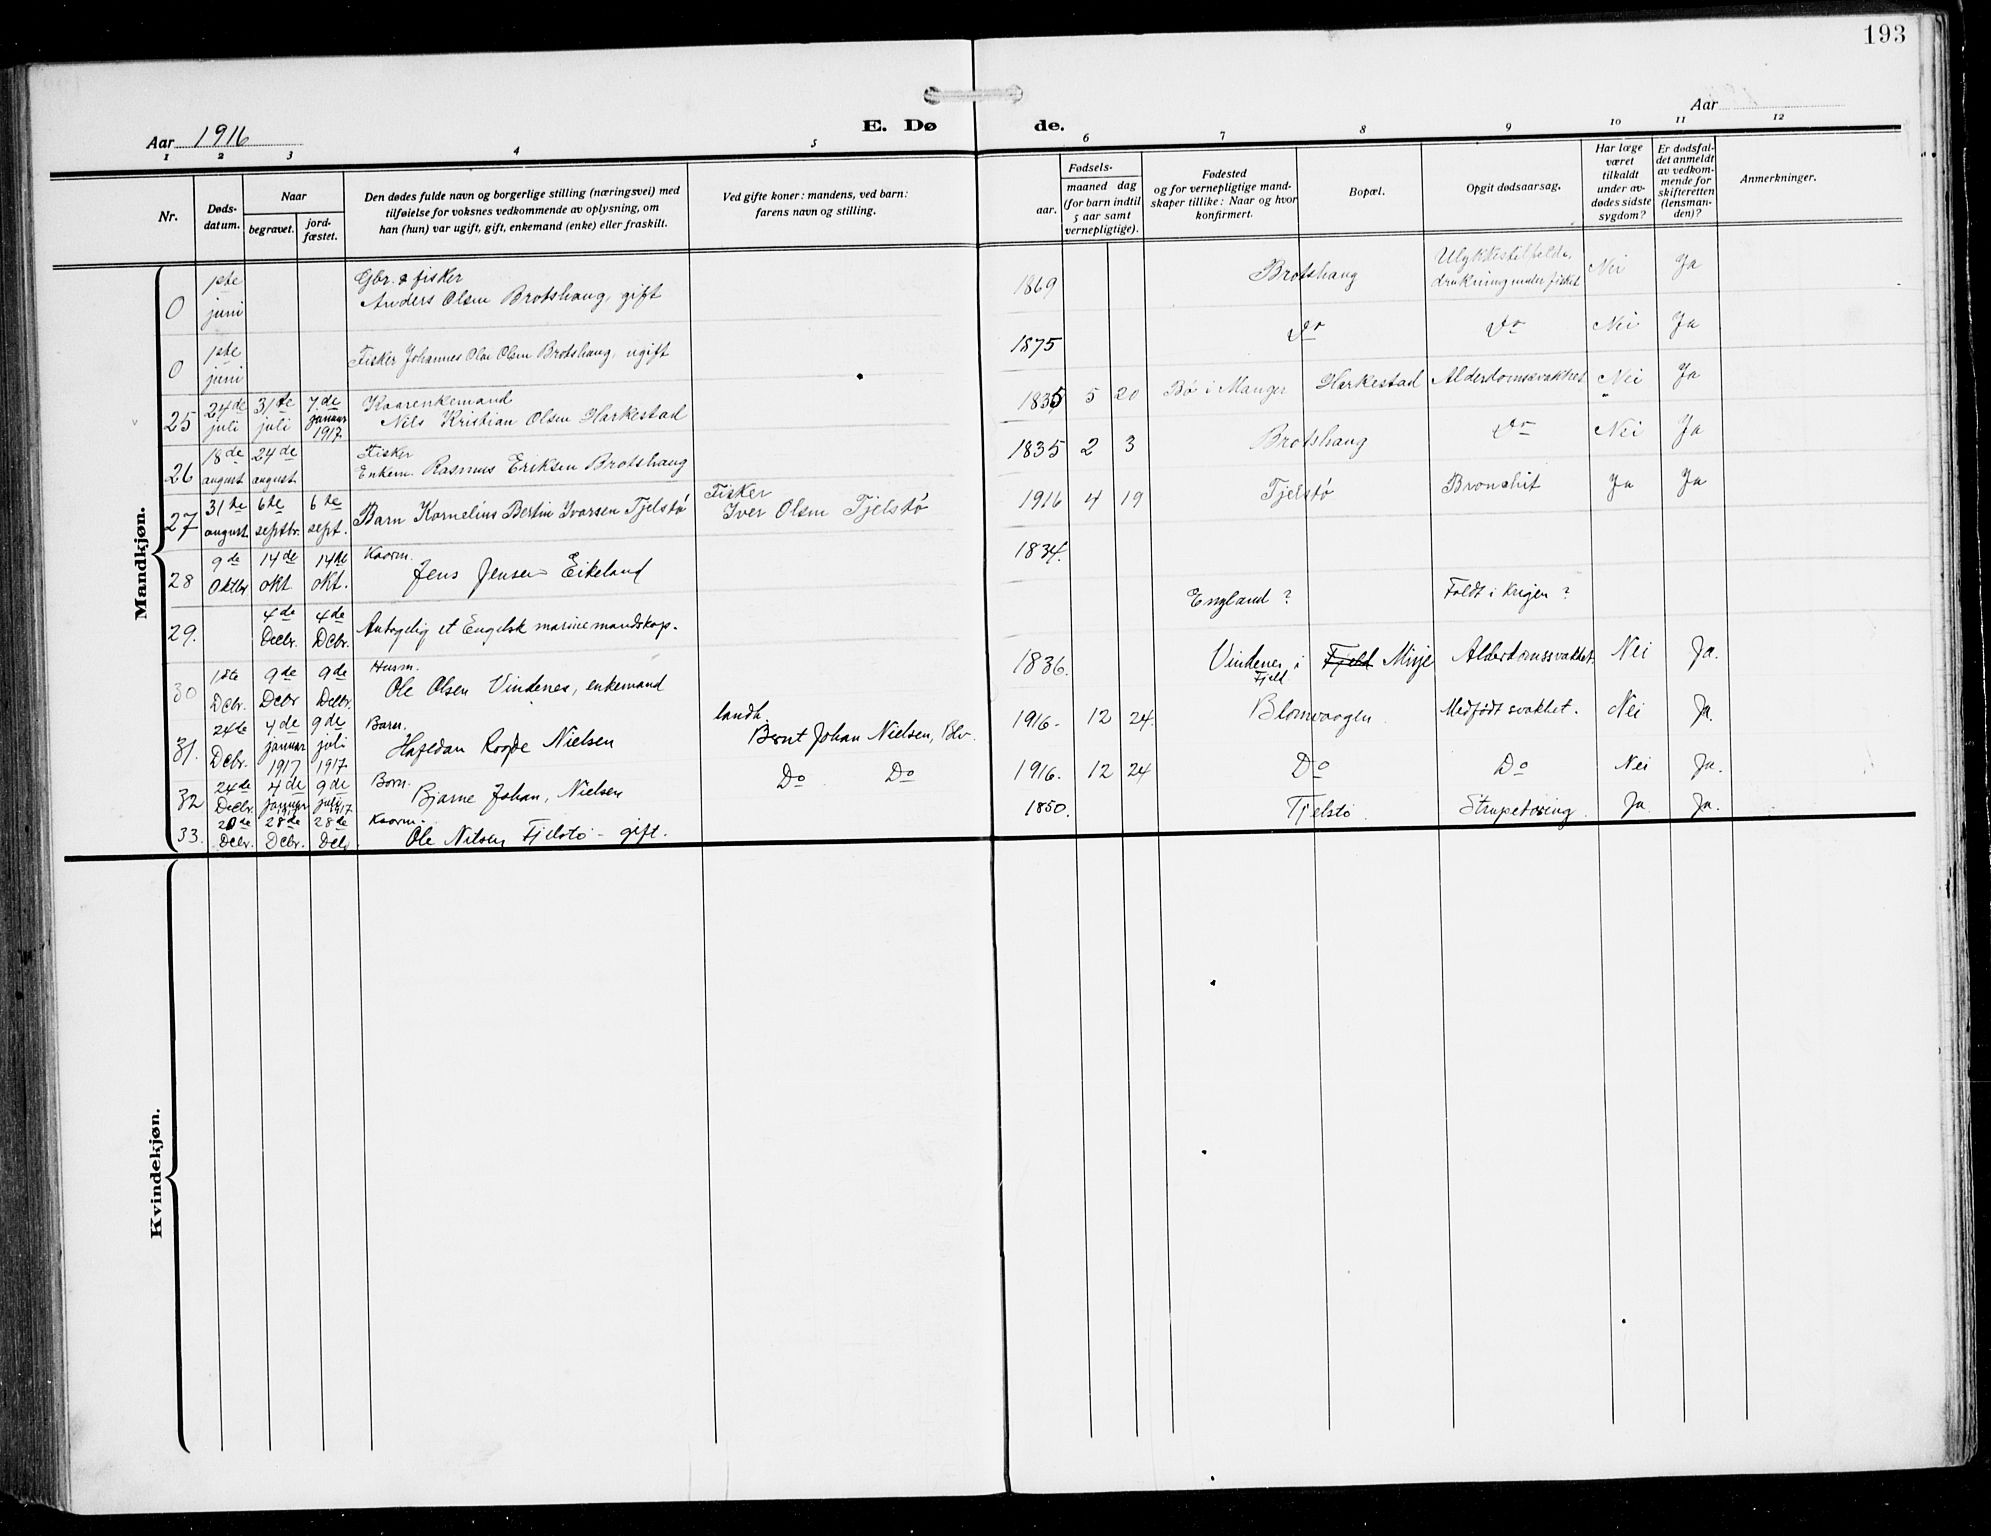 193
Aar 1916
E. Dø de.
Aar
1 2 3 4 5 6 7 8 9 10 11 12
Nr.
Døds-
datum.
Naar
begravet.
jord-
fæstet.
Den dødes fulde navn og borgerlige stilling (næringsvei) med
tilføielse for voksnes vedkommende av oplysning, om
han (hun) var ugift, gift, enkemand (enke) eller fraskilt.
Ved gifte koner: mandens, ved barn:
farens navn og stilling.
Fødsels-
aar.
maaned dag
(for barn indtil
5 aar samt
vernepligtige).
Fødested
og for vernepligtige mand-
skaper tillike: Naar og hvor
konfirmert.
Bopæl.
Opgit dødsaarsag.
Har læge
været
tilkaldt
under av-
dødes sidste
sygdom?
Er dødsfal-
det anmeldt
av vedkom-
mende for
skifteretten
(lensman-
den)?
Anmerkninger.
Mandkjøn.
0 1ste juni Gbr. & fisker
Anders Olsen Brotshaug, gift 1869 Brotshaug Ulykkestilfelde,
drukning under fisket Nei Ja
0 1ste juni Fisker Johannes Olai Olsen Brotshaug, ugift 1875 do do Nei Ja
25 24de juli 31te juli 7.de januar 1917 Kaarenkemand
Nils Kristian Olsen Harkestad 1835 5 20 Bø i Manger Harkestad Alderdomssvakhet Nei Ja
26 18de august 24de august Fisker
Enkem. Rasmus Eriksen Brotshaug 1835 2 3 Brotshaug do Nei Ja
27 31te august 6te septbr. 6te sept. Barn Kornelius Bertin Ivarsen Tjelstø Fisker
Iver Olsen Tjelstø 1916 4 19 Tjelstø Bronchit Ja Ja
28 9de Oktbr 14de okt 14de okt. Kaarm.
Jens Jensen Eikeland 1834.
29. 4de Decbr. 4de Dcbr. Antagelig et Engelsk marinemandskap. England? Faldt i krigen?
30 1ste Dcbr. 9de Dcbr 9de Decbr. Husm.
Ole Olsen Vindenes, enkemand 1836. Vindenes i
Fjeld Fjeld Misje Alderdomssvakhet. Nei Ja.
31. 24de Dcbr. 4.de januar 1917 9de juli 1917 Barn.
Nielsen landh.
Bernt Johan Nielsen, Blv. 1916. 12 24. Blomvaagen. Medfødt svakhet. Nei Ja.
32 24de Decbr. 4de januar 1917 9de juli 1917 Barn.
Bjarne Johan, Nielsen Do Do 1916. 12 24 Do Do Nei Ja.
33. 20de Decbr. 28de Dcbr. 28de Dcbr. Kaarm.
Ole Nilsen Tjelstø – gift. 1850. Tjelstø. Strupetæring. Ja. Ja.
Kvindekjøn.